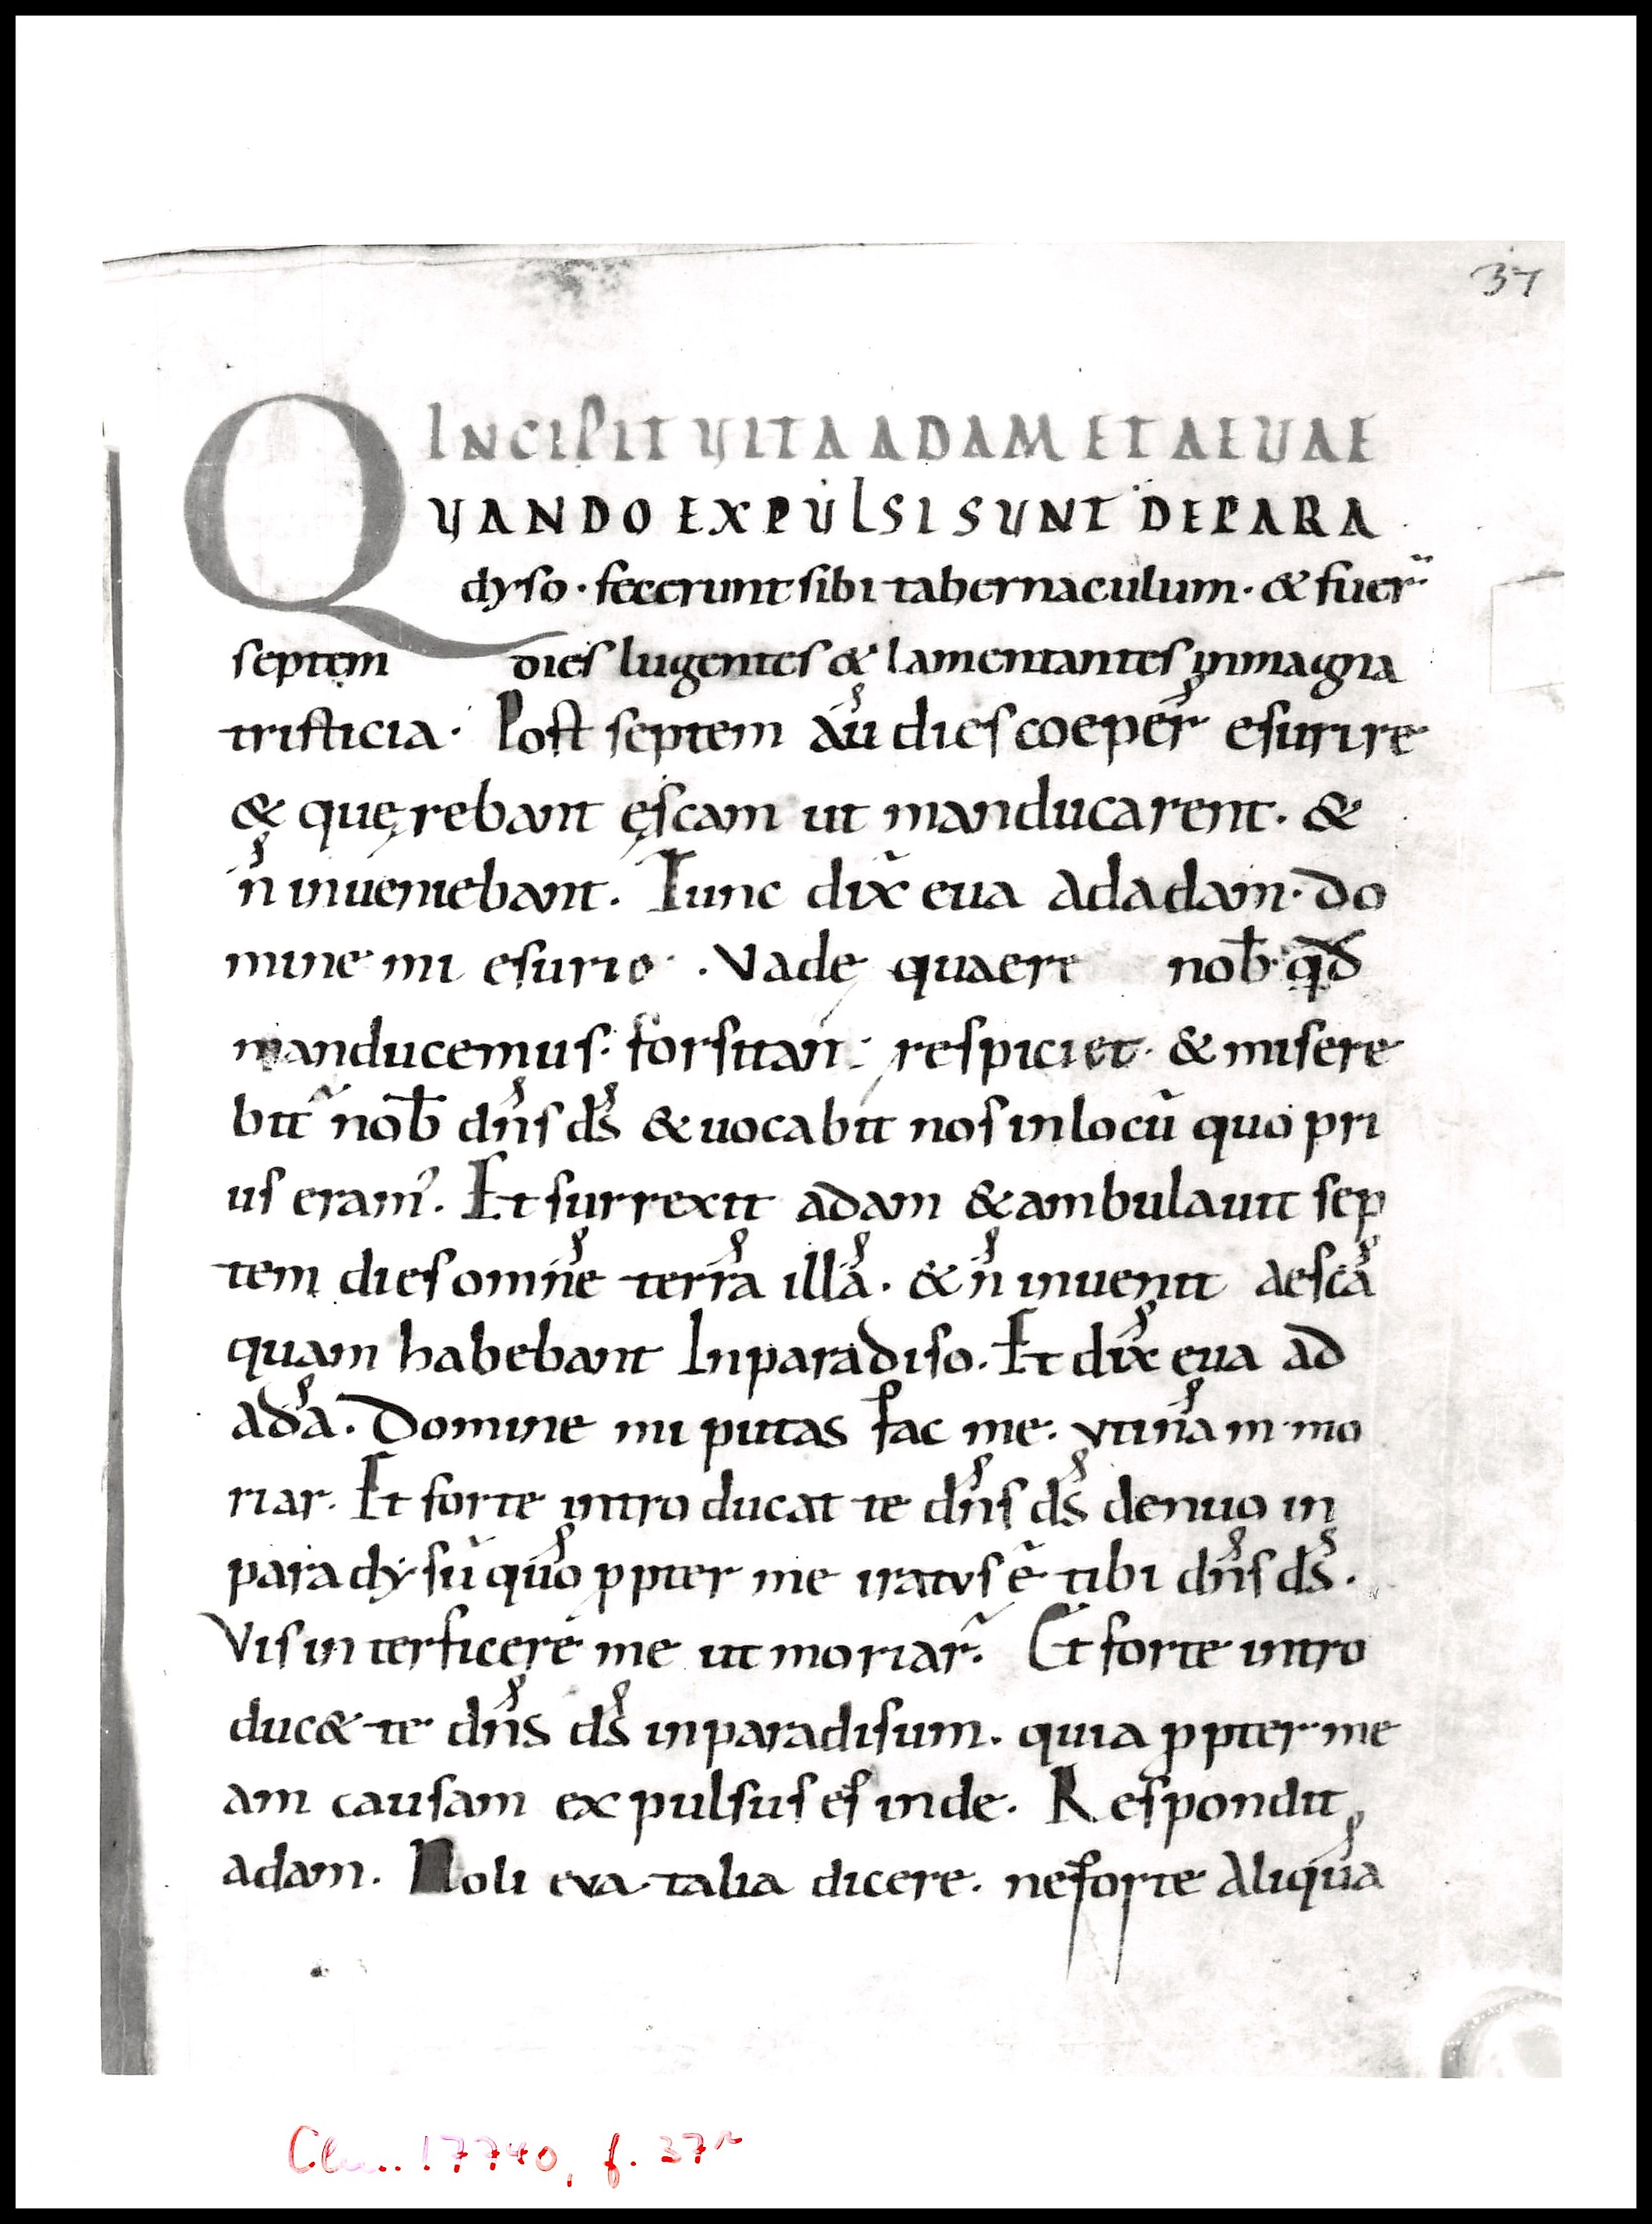 37
INCIPIT UITA ADAM ET AEUAE
QUANDO EXPULSI SUNT DE PARA
dyso · fecerunt sibi tabernaculum · & fuer̄
septem dies lugentes & lamentantes in magna
tristicia · Post septem au̅ dies coeper̅ esurire
& quęrebant ęscam ut manducarent · &
n̅ inueniebant . Tunc dix̅ eua ad adam · do
mine mi esurio · . Vade quaere nob̅ · qd̅
manducemus · forsitan · respiciet · & misere
bit̅ nob̅ dn̅s ds̅ & uocabit nos in locu̅ quo pri
us eram᾿ . Et surrexit adam & ambulauit sep
tem dies omn̅e terra̅ illa̅ . & n̅ inuenit aesca̅
quam habebant In paradiso . Et dix̅ eua ad
ada̅ . Domine mi putas fac me · vtina̅ m mo
riar . Et forte introducat te dn̅s ds̅ denuo in
paradysu̅ quo̅ ꝓpter me iratvs ē tibi dn̅s ds̅ .
Vis interficere me ut moriar̅ . Et forte intro
duc& te dn̅s ds̅ in paradisum . quia ꝓpter me
am causam expulsus es inde . Respondit
adam . Noli eva talia dicere . ne forte aliqua̅
17740, f. 37r